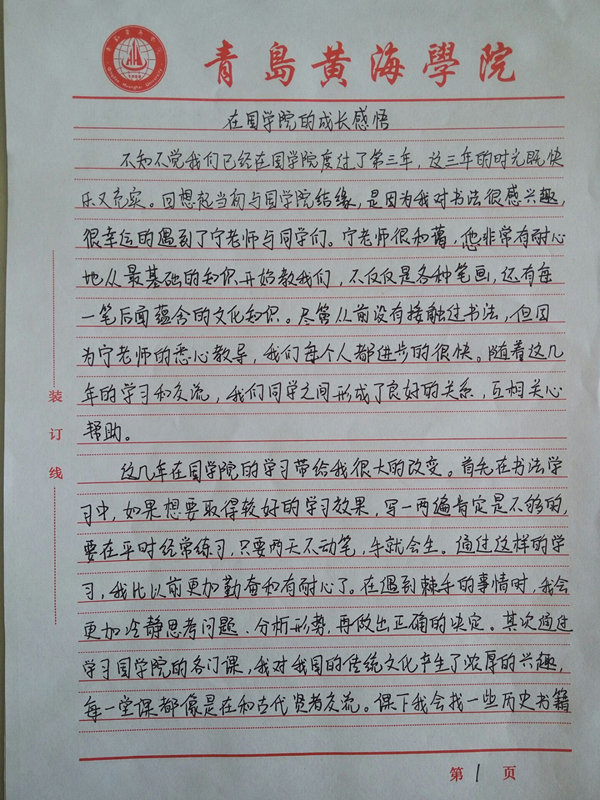 青島黄海學院
在国学院的成长感悟
不知不觉我们已经在国学院度过了第三年，这三年的时光既快
乐又充实。回想起当初与国学院结缘，是因为我对书法很感兴趣，
很幸运的遇到了宁老师与同学们。宁老师很和蔼，他非常有耐心
地从最基础的知识开始教我们，不仅仅是各种笔画，还有每
一笔后面蕴含的文化知识。尽管从前没有接触过书法，但因
为宁老师的悉心教导，我们每个人都进步的很快。随着这几
年的学习和交流，我们同学之间形成了良好的关系，互相关心
帮助。
这几年在国学院的学习带给我很大的改变。首先在书法学
习中，如果想要取得较好的学习效果，写一两遍肯定是不够的，
要在平时经常练习，只要两天不动笔，手就会生。通过这样的学
习，我比以前更加勤奋和有耐心了。在遇到棘手的事情时，我会
更加冷静思考问题、分析形势，再做出正确的决定。其次通过
学习国学院的各门课，我对我国的传统文化产生了浓厚的兴趣，
每一堂课都像是在和古代贤者交流。课下我会找一些历史书籍
装订线
第1页